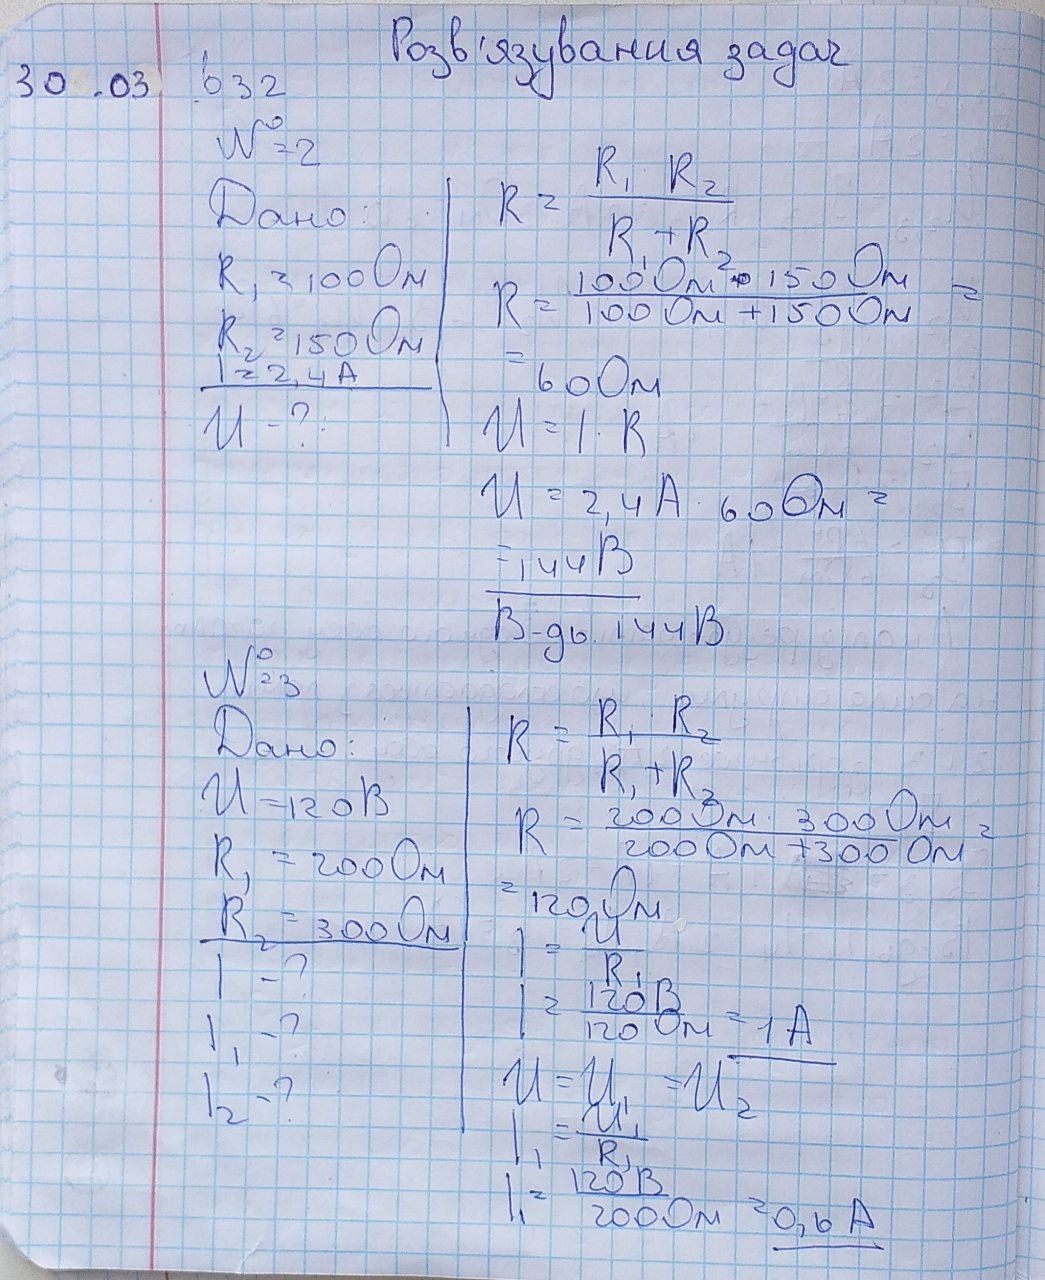 Розв'язування задач
30.03 §32
№2
Дано:
R₁ = 100 Ом
R₂ = 150 Ом
I = 2,4 А
U - ?
R = R₁ · R₂ / R₁ + R₂
R = 100 Ом · 150 Ом / 100 Ом + 150 Ом =
= 60 Ом
U = I · R
U = 2,4 А · 60 Ом =
= 144 В
В-дь 144 В
№3
Дано:
U = 120 В
R₁ = 200 Ом
R₂ = 300 Ом
I - ?
I₁ - ?
I₂ - ?
R = R₁ · R₂ / R₁ + R₂
R = 200 Ом · 300 Ом / 200 Ом + 300 Ом =
= 120 Ом
I = U / R₁
I = 120 В / 120 Ом = 1 А
U = U₁ = U₂
I₁ = U₁ / R₁
I₁ = 120 В / 200 Ом = 0,6 А